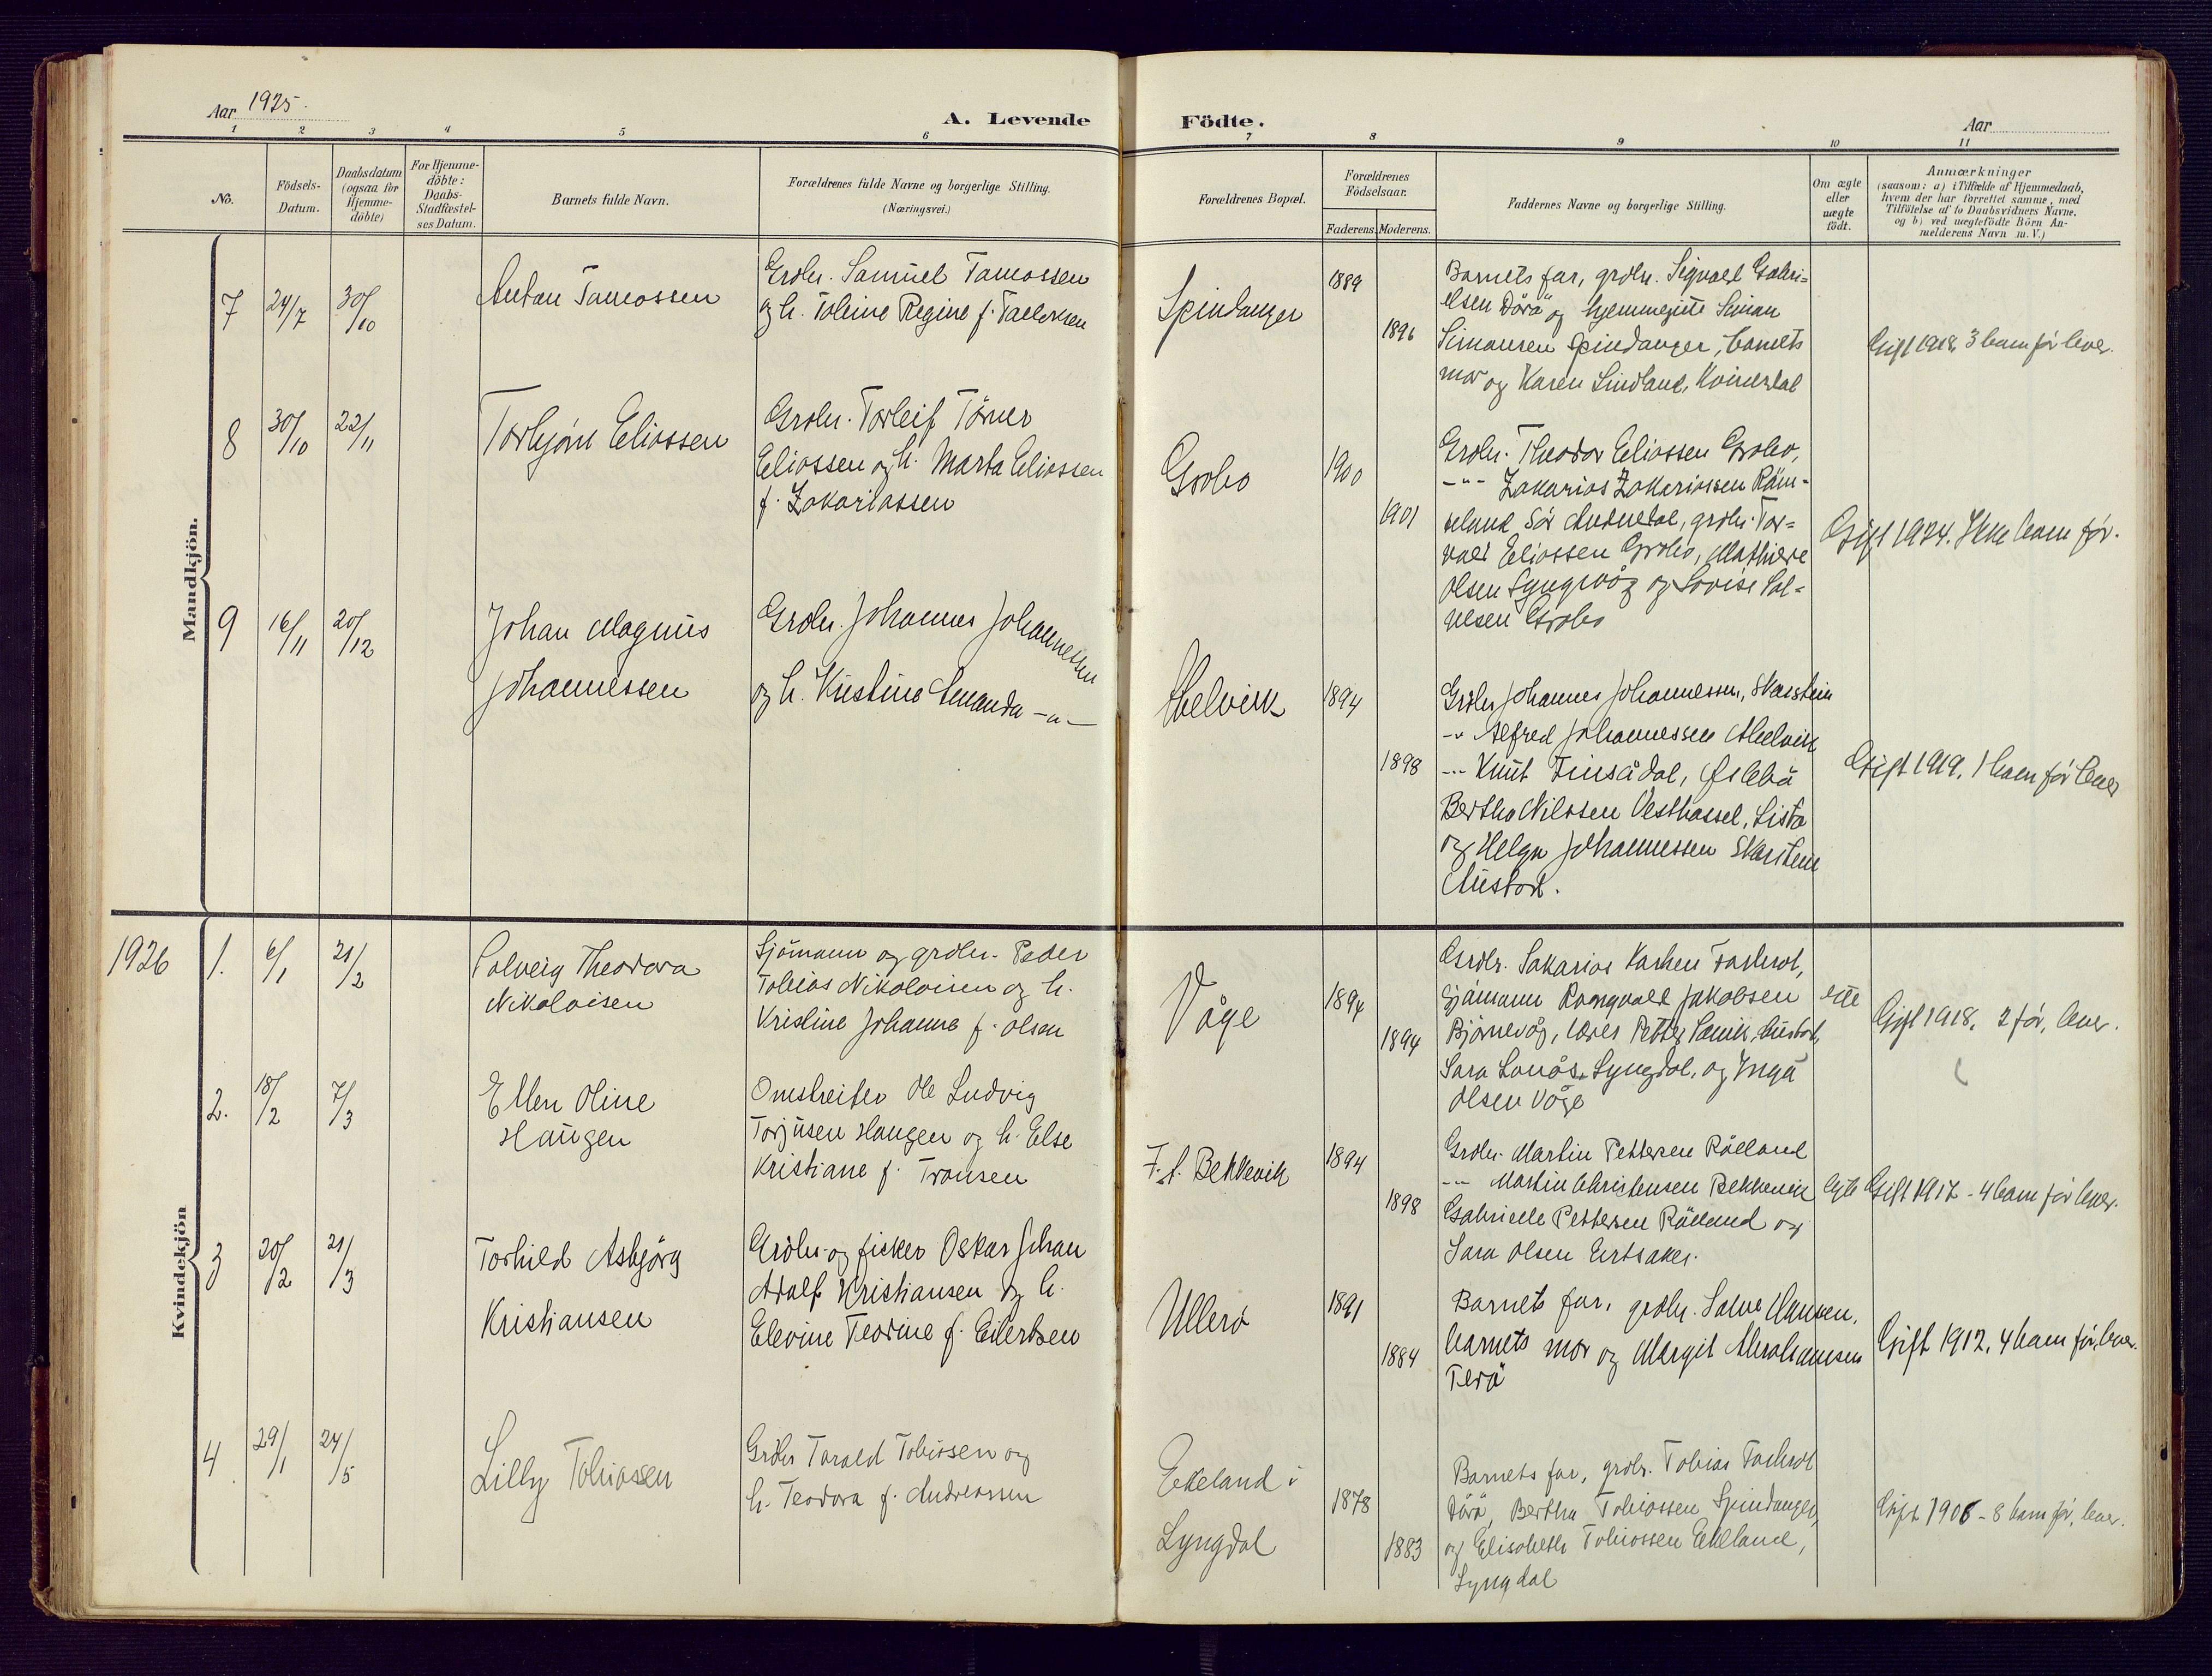 Aar 1925.
A. Levende Födte.
Aar
1 2 3 4 5 6 7 8 9 10 11
No.
Födsels-
Datum.
Daabsdatum
(ogsaa for
Hjemme-
döbte)
For Hjemme-
döbte:
Daabs-
Stadfæstel-
ses Datum.
Barnets fulde Navn.
Forældrenes fulde Navne og borgerlige Stilling.
(Næringsvei.)
Forældrenes Bopæl.
Forældrenes
Födselsaar.
Faderens. Moderens.
Faddernes Navne og borgerlige Stilling.
Om ægte
eller
uægte
födt.
Anmærkninger
(saasom: a) i Tilfælde af Hjemmedaab,
hvem der har forrettet samme, med
Tilföielse af to Daabsvidners Navne.
og b) ved uægtefödte Börn An-
melderens Navn m. V.)
Mandkjön.
7 24/7 30/10
Anton Tamossen
Grdbr. Samuel Tamossen
og h. Toline Regine f.
Spindanger
1889
1896
Barnets far, grdbr. Sigvald Gabri-
elsen Dörä og hjemmegitte Simon
Simonsen Spindanger, barnets
mor og Karen Lindland, Kvinesdal
Gift 1918. 3 barn før lever.
8 30/10 22/11
Torbjörn Eliassen
Grdbr. Torleif Törner
Eliassen og h. Marta Eliassen
f. Zakariassen
Grobo
1900
1901
Grdbr. Theodor Eliassen Grobo,
-"- Zakarias Zakariassen Räm-
seland Sör Audnedal, grdbr. Tor-
vald Eliassen Grobo, Mathilde
Olsen Lyngsvåg og Lovise Sal-
vesen Grobo
Gift 1924. Ikke barn før.
9 16/11 20/12
Johan Magnus
Johannessen
Grdbr. Johannes Johannessen
og h. Kristine Amanda -"-
Abelvik
1894
1898
Grdbr Johannes Johannessen, Skarstein
-"- Alfred Johannessen Abelvik
-"- Knut Finsådal, Öslebö
Bertha Nilssen Vesthassel, Lista
og Helga Johannessen Skarstein
Austad.
Gift 1919. 1 barn før lever
1926
Kvindekjön
1. 6/1 21/2
Solveig Theodora
Nikolaisen
Sjömann og grdbr. Peder
Tobias Nikolaisen og h.
Kristine Johanne f. Olsen
Våge
1894
1894
Grdbr. Sakarias Karsten Foshrot,
Sjömann Rongvald Jakobsen
Björnevåg, lærer Petter, Austad,
Sara Lonås, Lyngdal, og Inga
Olsen Våge
Gift 1918. 2 før, lever.
2. 18/2 7/3
Ellen Oline
Haugen
Omstreifer Ole Ludvig
Torjusen Haugen og h. Else
Kristiane f. Fransen
F. f. Bekkevik
1894
1898
Grdbr. Martin Pettersen Rålland
-"- Martin Christensen Bekkevik
Gabrielle Pettersen Rålland og
Sara Olsen Ertsaker.
Gift 1917 - 4 barn før lever.
3 20/2 21/3
Torhild Asbjörg
Kristiansen
Grdbr. og fisker Oskar Johan
Adolf Kristiansen og h.
Elevine Teodine f. Eilertsen
Ullerö
1891
1884
Barnets far, grdbr. Salve Hansen,
barnets mor og Margit Abrahamsen
Terö
Gift 1912. 4 barn før, lever.
4 29/1 24/5
Lilly Tobiassen
Grdbr Tarald Tobiassen og
h. Teodora f. Andreassen
Eikeland i
Lyngdal
1878
1883
Barnets far, grdbr. Tobias Foshrot
Dörä, Bertha Tobiassen Spindanger,
og Elisabeth Tobiassen Eikeland,
Lyngdal
Gift 1906 - 8 barn før, lever.